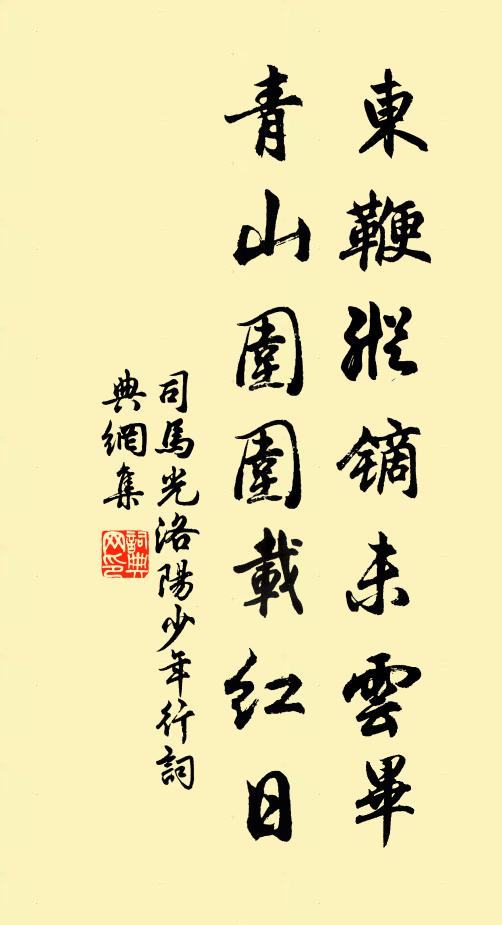 東鞭縱鏑未雲畢
青山圍圍載紅日
司馬光洛陽少年行詞
典網集
詞典網印